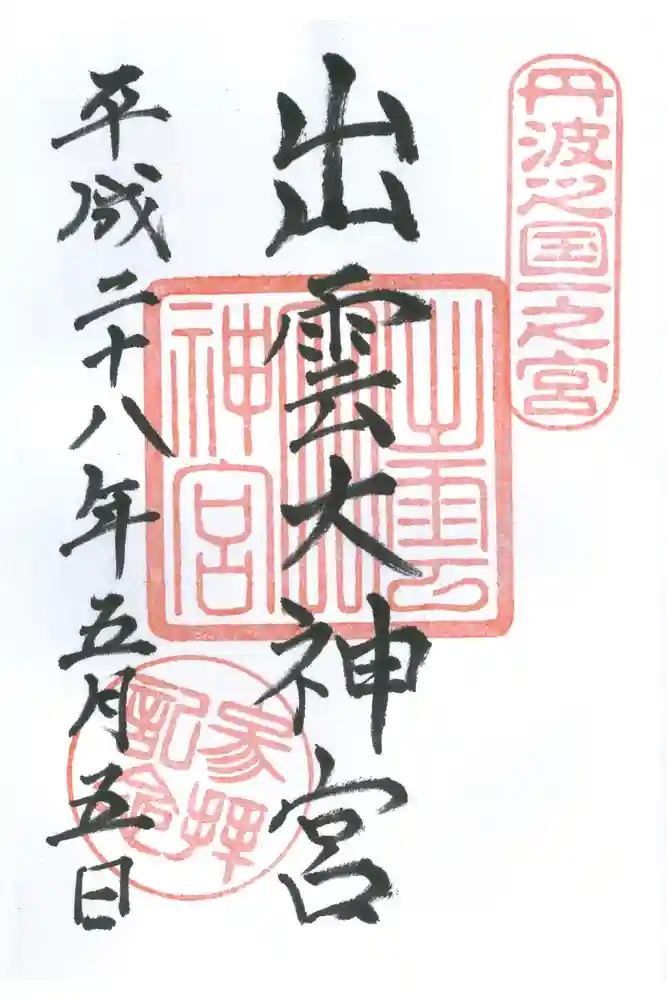 丹波之国一之宮
出雲大神宮
出雲大神宮
参拝記念
平成二十八年五月五日